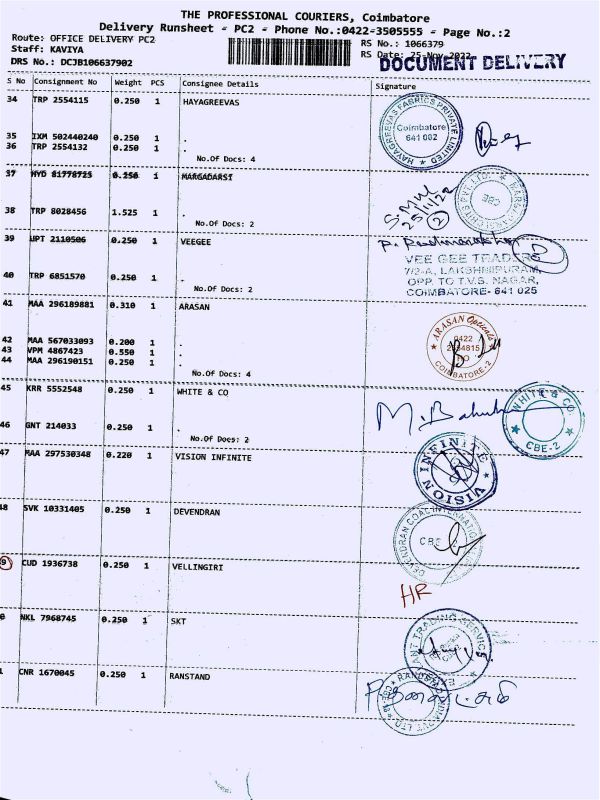 THE PROFESSIONAL COURIERS, Coimbatore
Delivery Runsheet - PC2 - Phone No.:0422-3505555 - Page No.:2
Route: OFFICE DELIVERY PC2
Staff: KAVIYA
DRS No.: DCJB106637902
RS No.: 1066379
RS Date: 25-Nov-2022
DOCUMENT DELIVERY
S No Consignment No Weight PCS Consignee Details Signature
34 TRP 2554115 0.250 1 HAYAGREEVAS
HAYAGREEVAS FABRICS PRIVATE LIMITED
Coimbatore
641 002
35 IXM 502440240 0.250 1 .
36 TRP 2554132 0.250 1 .
No.Of Docs: 4
37 HYD 81778725 0.250 1 MARGADARSI
CBE
25/11/22
2
38 TRP 8028456 1.525 1 .
No.Of Docs: 2
39 UPT 2110506 0.250 1 VEEGEE
VEE GEE TRADERS
7/2-A, LAKSHMIPURAM,
OPP. TO T.V.S. NAGAR,
COIMBATORE- 641 025
40 TRP 6851570 0.250 1 .
No.Of Docs: 2
41 MAA 296189881 0.310 1 ARASAN
ARASAN Opticals
0422
COIMBATORE-2
42 MAA 567033093 0.200 1 .
43 VPM 4867423 0.550 1 .
44 MAA 296190151 0.250 1 .
No.Of Docs: 4
45 KRR 5552548 0.250 1 WHITE & CO
WHITE & CO.
CBE-2
46 GNT 214033 0.250 1 .
No.Of Docs: 2
47 MAA 297530348 0.220 1 VISION INFINITE
VISION INFINITE
48 SVK 10331405 0.250 1 DEVENDRAN
DEVENDRAN COAL INTERNATIONAL
CBE
9 CUD 1936738 0.250 1 VELLINGIRI
HR
0 NKL 7968745 0.250 1 SKT
TRADING SERVICE
1 CNR 1670045 0.250 1 RANSTAND